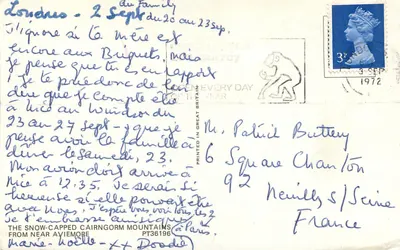 du Family
Londres - 2 Sept du 20 au 23 sep.
J'ignore si la Mère est
encore aux Briguets, mais
je pense que tu es en rapport
je te prie donc de lui
dire que je compte être
à Nice au Windsor du
23 au 27 Sept - que je
pense avoir la famille à
dîner le Samedi 23.
Mon avion doit arriver à
Nice à 12.35. Je serais si
heureuse si elle pouvait être
avec nous. J'espère vous voir tous les 2
à Paris.
Je t'embrasse
Marie-Noëlle - xx
THE SNOW-CAPPED CAIRNGORM MOUNTAINS
FROM NEAR AVIEMORE PT36196
PRINTED IN GREAT BRITAIN
EVERY DAY
3P
SEP
1972
M. Patrick Buttery
6 Square Chanton
92 Neuilly s/Seine
France